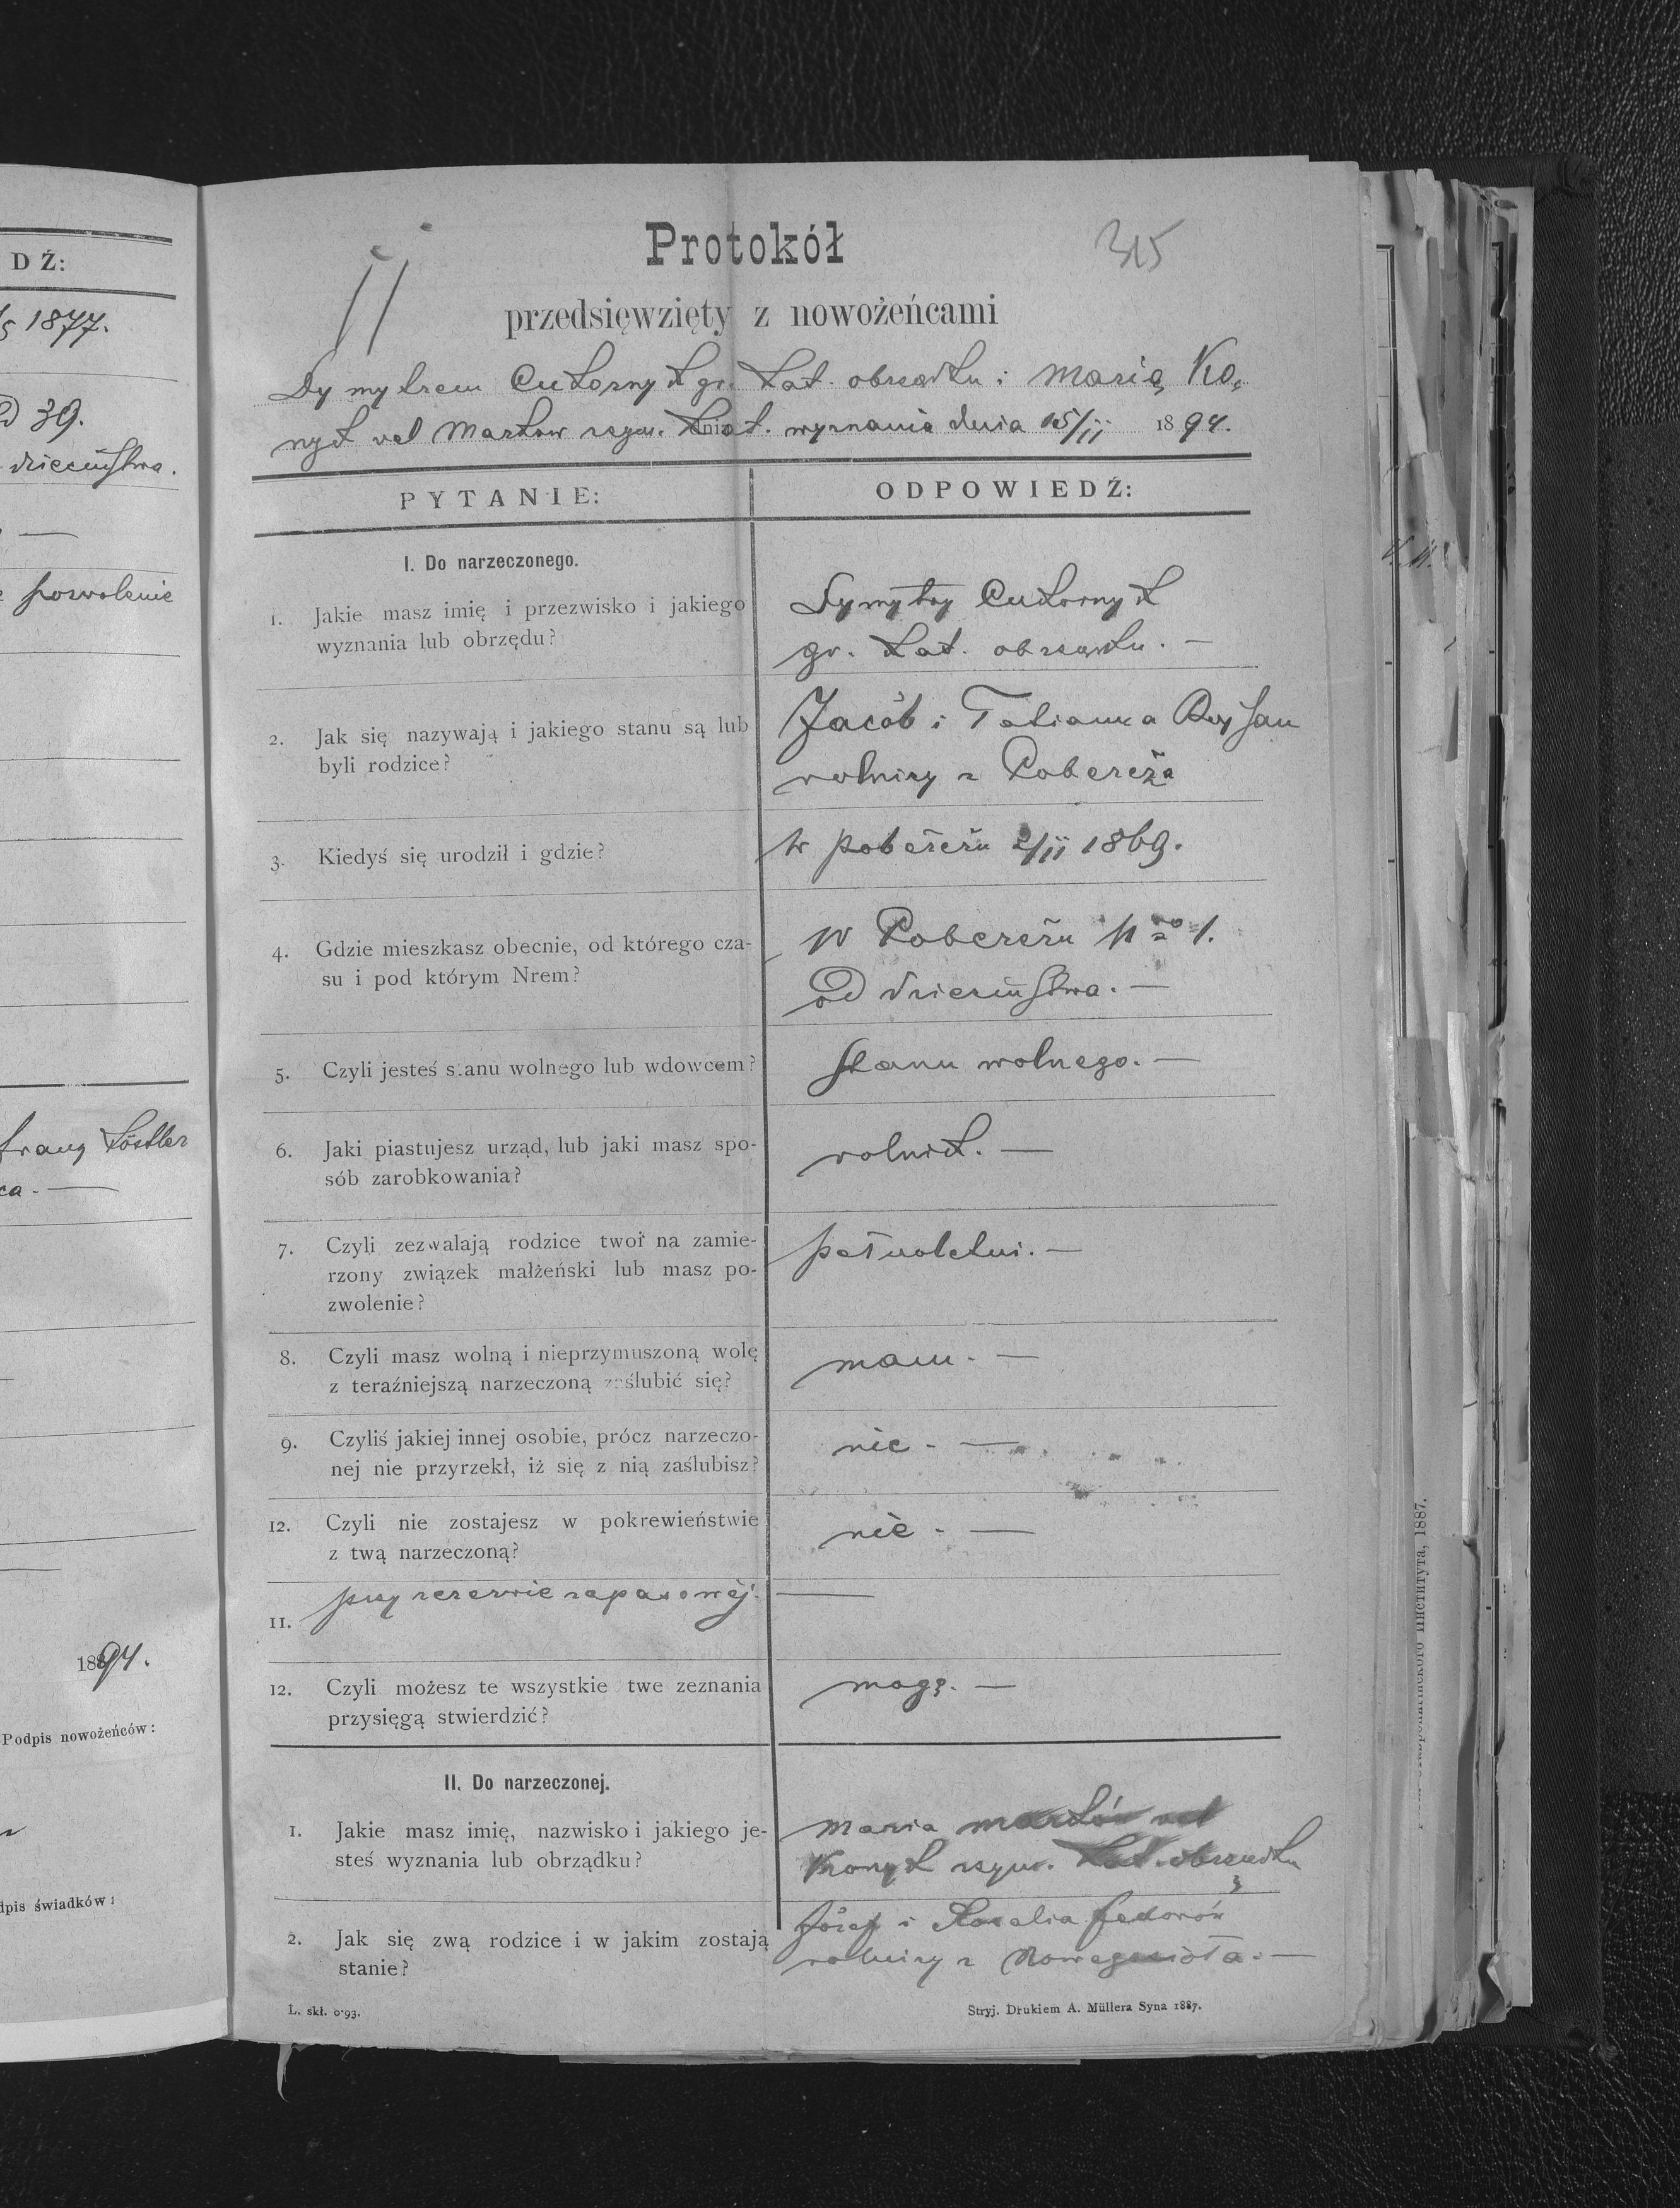 DŹ:
1877.
39.
dzieciństwa.
pozwolenie
Köstler
1894.
Podpis nowożeńców:
dpis świadków:
315
11
Protokół
przedsięwzięty z nowożeńcami
Dymytrem Cukornyk gr. kat. obrządku i Marią Ko-
nyk vel Markow rzym. kat. wyznania dnia 15/11 1894.
PYTANIE:
ODPOWIEDŹ:
I. Do narzeczonego.
1. Jakie masz imię i przezwisko i jakiego
wyznania lub obrzędu?
Dymytry Cukornyk
gr. kat. obrządku. —
2. Jak się nazywają i jakiego stanu są lub
byli rodzice?
Jacób i Tatianna
rolnicy z Pobereża
3. Kiedyś się urodził i gdzie?
w Pobereżu 2/11 1869.
4. Gdzie mieszkasz obecnie, od którego cza-
su i pod którym Nrem?
w Pobereżu Nro 1.
od dzieciństwa. —
5. Czyli jesteś stanu wolnego lub wdowcem?
stanu wolnego. —
6. Jaki piastujesz urząd, lub jaki masz spo-
sób zarobkowania?
rolnik. —
7. Czyli zezwalają rodzice twoi na zamie-
rzony związek małżeński lub masz po-
zwolenie?
pełnoletni. —
8. Czyli masz wolną i nieprzymuszoną wolę
z teraźniejszą narzeczoną zaślubić się?
mam. —
9. Czyliś jakiej innej osobie, prócz narzeczo-
nej nie przyrzekł, iż się z nią zaślubisz?
nie. —
12. Czyli nie zostajesz w pokrewieństwie
z twą narzeczoną?
nie. —
11. przy rezerwie zapasowej. —
12. Czyli możesz te wszystkie twe zeznania
przysięgą stwierdzić?
mogę. —
II. Do narzeczonej.
1. Jakie masz imię, nazwisko i jakiego je-
steś wyznania lub obrządku?
Maria Marków vel
Konyk rzym. kat. obrządku
2. Jak się zwą rodzice i w jakim zostają
stanie?
Józef i Rozalia Fedorów
rolnicy z Nowegosioła. —
L. skł. 0·93.
Stryj. Drukiem A. Müllera Syna 1887.
Института, 1887.